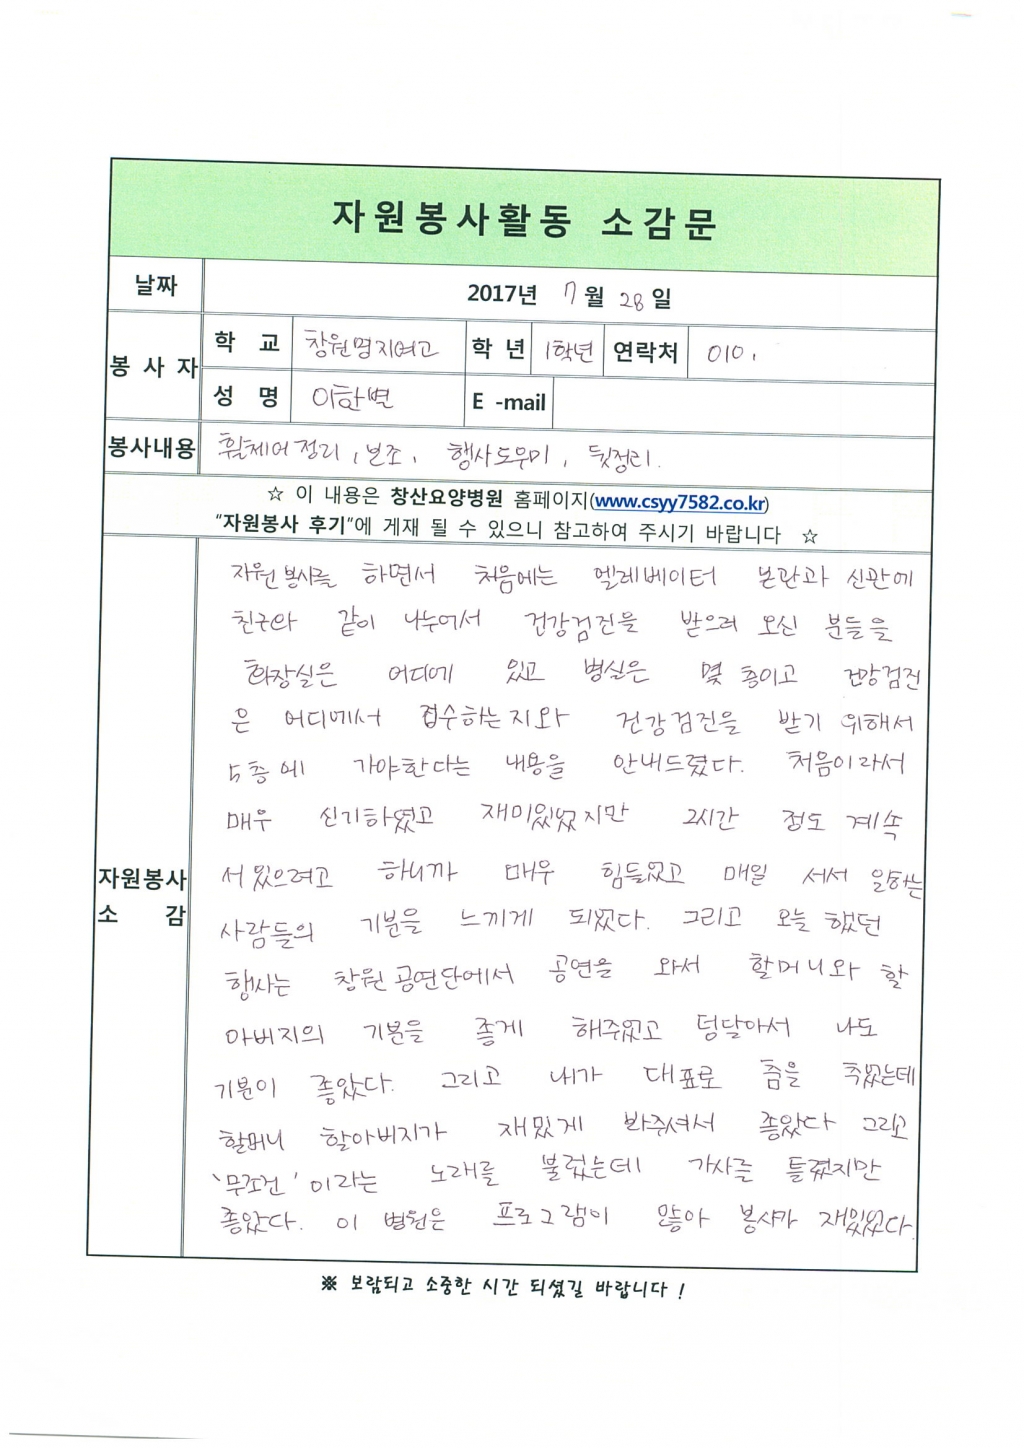 자원봉사활동 소감문
날짜 2017년 7월 28일
봉사자 학교 창원명지여고 학년 1학년 연락처 010.
성명 이한별 E-mail
봉사내용 휠체어 정리, 보조, 행사도우미, 뒷정리.
☆ 이 내용은 창산요양병원 홈페이지(www.csyy7582.co.kr)
"자원봉사 후기"에 게재 될 수 있으니 참고하여 주시기 바랍니다 ☆
자원봉사 소감
자원봉사를 하면서 처음에는 엘레베이터 본관과 신관에
친구와 같이 나누어서 건강검진을 받으러 오신 분들을
화장실은 어디에 있고 병실은 몇 층이고 건강검진
은 어디에서 접수하는지와 건강검진을 받기 위해서
5층에 가야한다는 내용을 안내드렸다. 처음이라서
매우 신기하였고 재미있었지만 2시간 정도 계속
서있으려고 하니까 매우 힘들었고 매일 서서 일하는
사람들의 기분을 느끼게 되었다. 그리고 오늘 했던
행사는 창원공연단에서 공연을 와서 할머니와 할
아버지의 기분을 좋게 해주었고 덩달아서 나도
기분이 좋았다. 그리고 내가 대표로 춤을 추었는데
할머니 할아버지가 재밌게 봐주셔서 좋았다 그리고
'무조건'이라는 노래를 불렀는데 가사를 틀렸지만
좋았다. 이 병원은 프로그램이 많아 봉사가 재밌었다.
※ 보람되고 소중한 시간 되셨길 바랍니다!